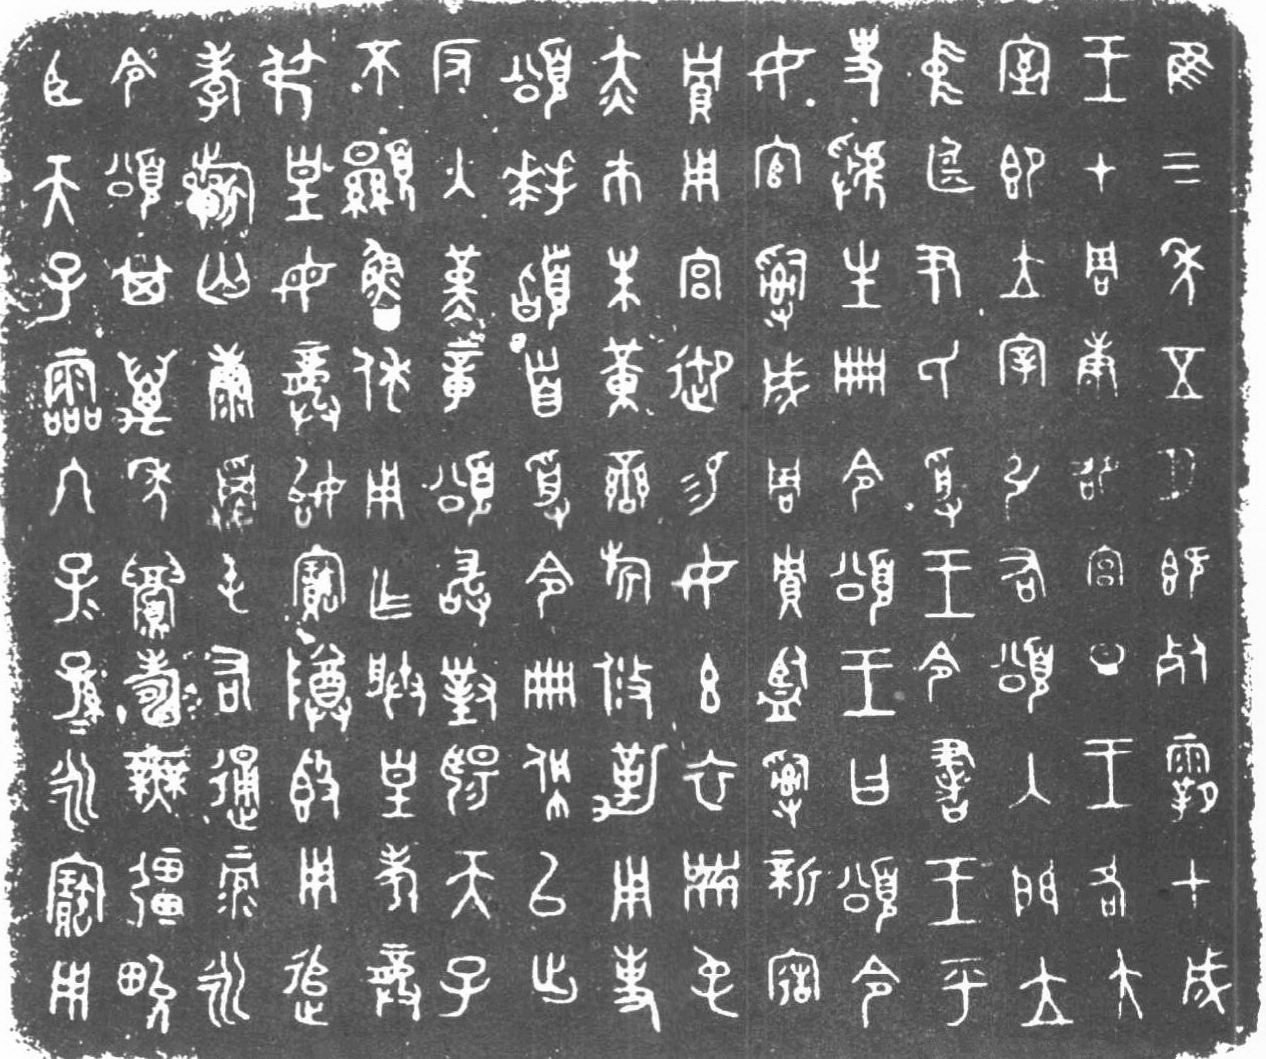 隹三年五月既死霸甲戌
王才周康卲宮旦王各大
室即立宰引右頌入門立
中廷尹氏受王令書王乎
史虢生冊令頌王曰頌令
女官𤔲成周貯監𤔲新造
貯用宮御易女玄衣黹屯
赤巿朱黃䜌旂攸勒用事
頌拜𩒨首受令冊佩以出
反入堇章頌敢對揚天子
不顯魯休用乍朕皇考龏
弔皇母龏姒寶尊𣪘用追
孝𣄨匄康屯右通彔永
令頌其萬年眉壽無疆畯
臣天子霝冬子=孫=永寶用